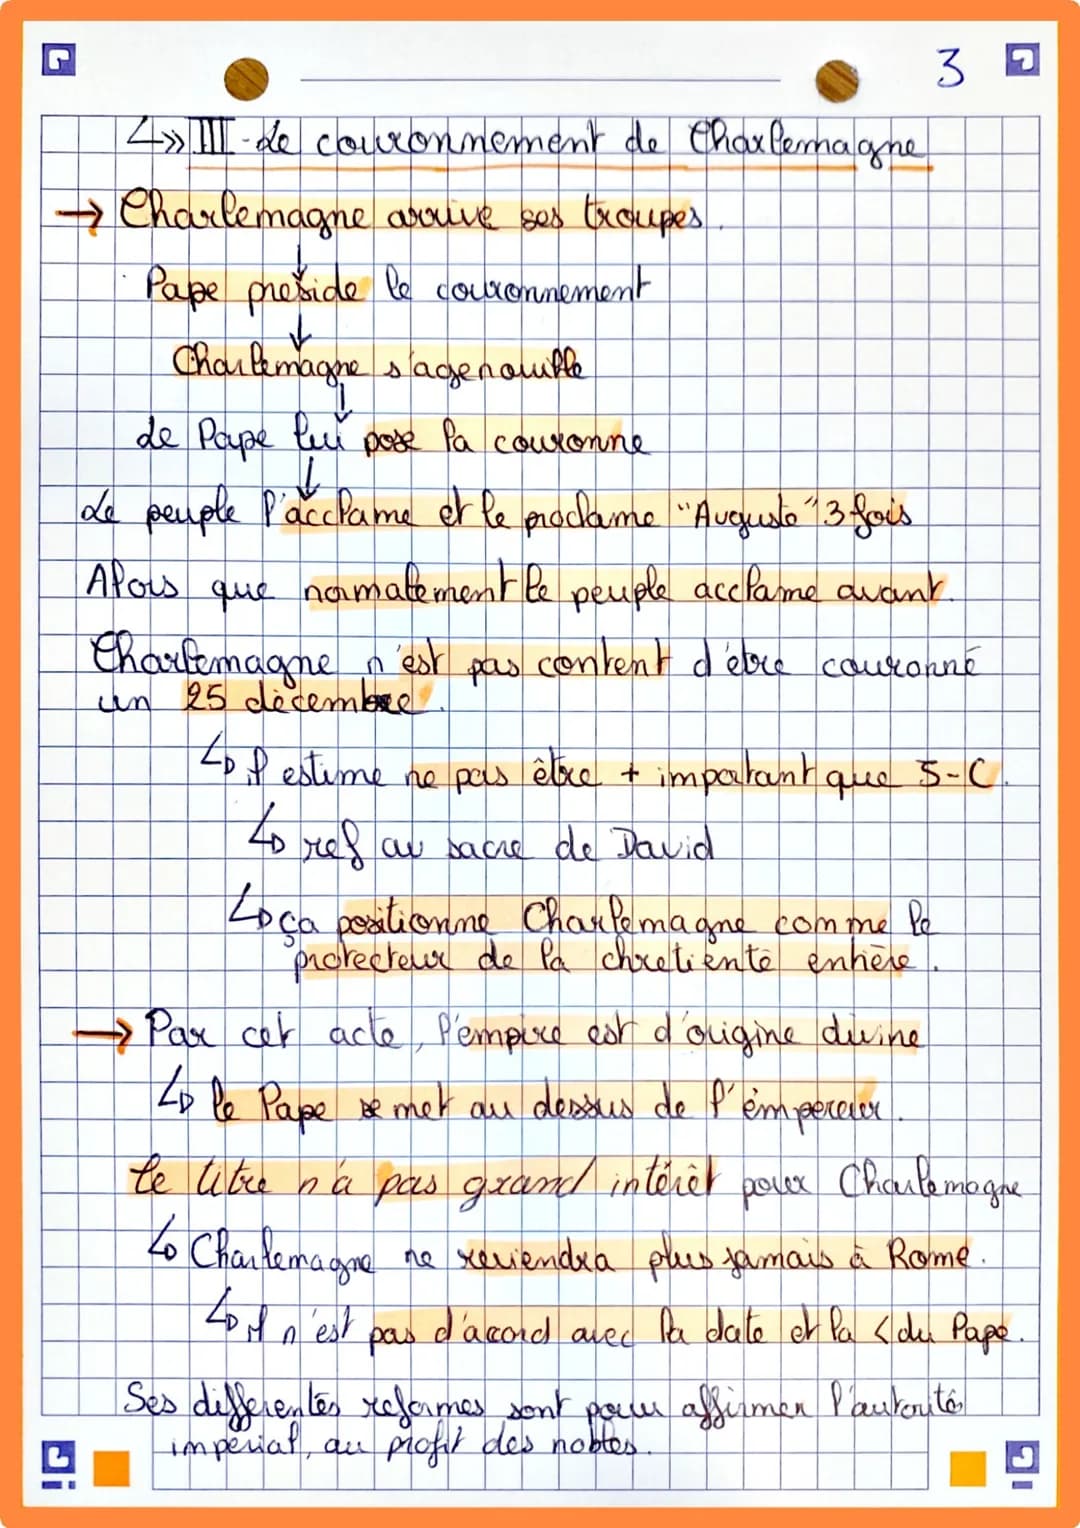 3
↳» III - Le couronnement de Charlemagne
→ Charlemagne arrive ses troupes.
Pape préside le couronnement
Charlemagne s'agenouille
Le Pape lui pose la couronne
Le peuple l'acclame et le proclame "Auguste" 3 fois
Alors que normalement le peuple acclame avant.
Charlemagne n'est pas content d'être couronné
un 25 décembre.
↳ il estime ne pas être + important que J-C.
↳ ref au sacre de David
↳ ça positionne Charlemagne comme le
protecteur de la chretienté entière.
→ Par cet acte, l'empire est d'origine divine
↳ le Pape se met au dessus de l'empereur.
Le titre n'a pas grand intérêt pour Charlemagne
↳ Charlemagne ne reviendra plus jamais à Rome.
↳ il n'est pas d'acord avec la date et la < du Pape.
Ses differentes reformes sont pour affirmer l'autorité
impérial, au profit des nobles.